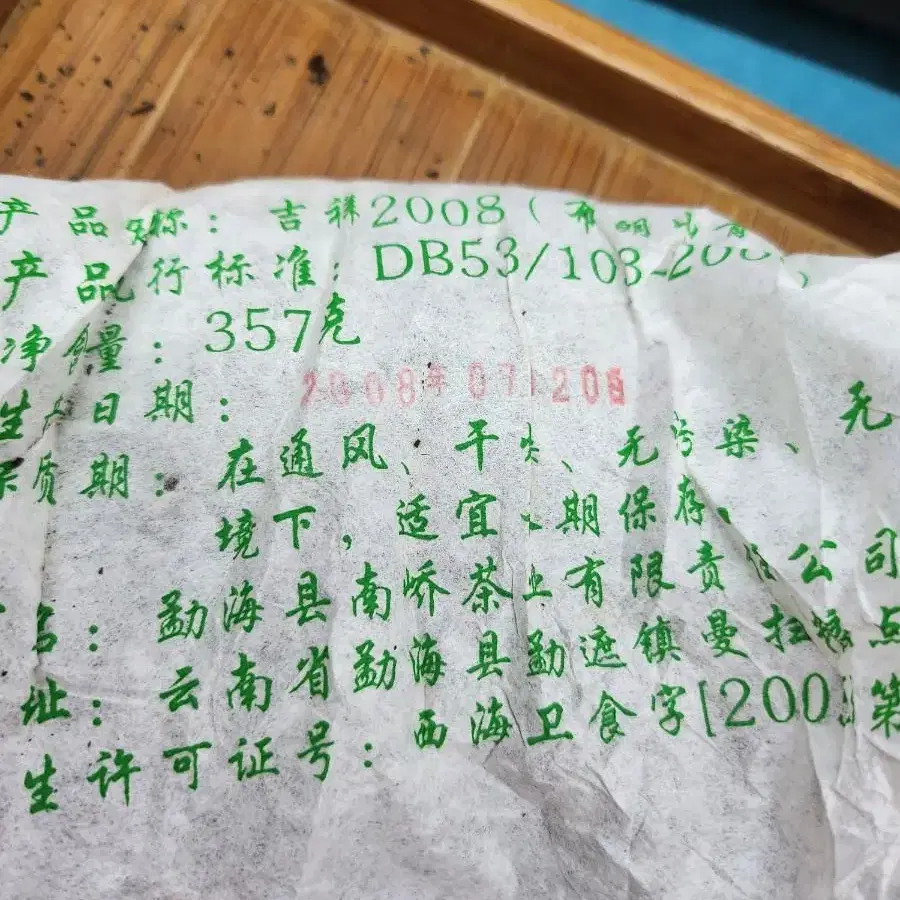 产品名称：吉祥2008（布朗山青
产品执行标准：DB53/103-200
净含量：357克
生产日期：2008年07月20
保质期：在通风、干燥、无污染、无
境下，适宜长期保存。
名：勐海县南峤茶业有限责任公司
址：云南省勐海县勐遮镇曼扫 点
生许可证号：西海卫食字[200 第